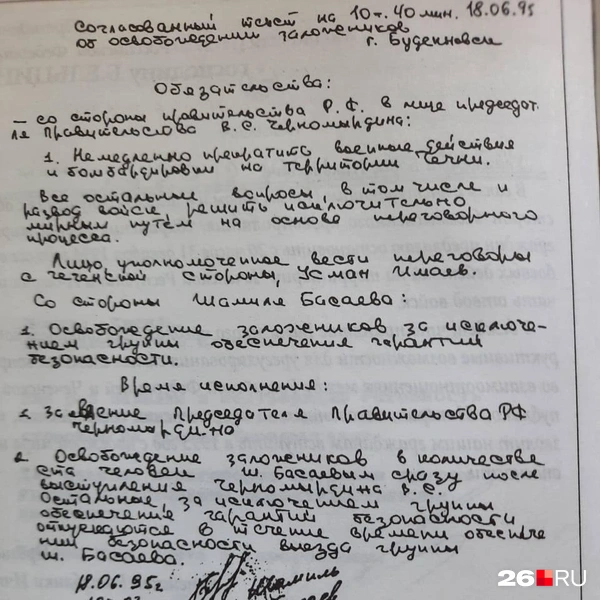 Согласованный текст на 10 ч. 40 мин. 18.06.95
об освобождении заложников г. Буденновск
Обязательства:
– со стороны правительства Р.Ф. в лице председат
ля Правительства В.С. Черномырдина:
1. Немедленно прекратить военные действия
и бомбардировки на территории Чечни.
Все остальные вопросы, в том числе и
развод войск решить исключительно
мирным путём на основе переговорного
процесса.
Лицо уполномоченное вести переговоры
с чеченской стороны, Усман Имаев.
Со стороны Шамиля Басаева:
1. Освобождение заложников за исключе-
нием группы обеспечения гарантий
безопасности.
Время исполнения:
1. Заявление Председателя Правительства РФ
Черномырдина
2. Освобождение заложников в количестве
ста человек Ш. Басаевым сразу после
выступления Черномырдина В.С.
Остальные за исключением группы
обеспечение гарантий безопасности
отпускаются в течение времени обеспече
ний безопасности выезда группы
Ш. Басаева.
18.06.95г. Шамиль
26.RU